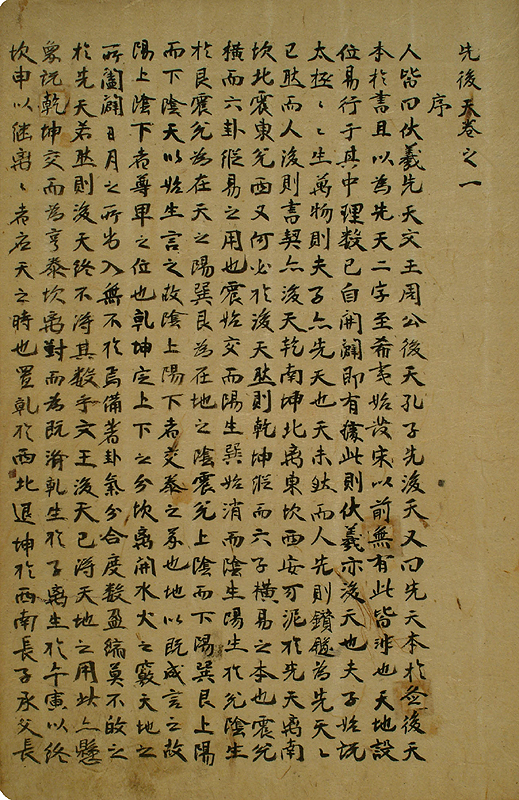 先後天卷之一
序
人皆曰伏羲先天文王周公後天孔子先後天又曰先天本於圖後天
本於書且以為先天二字至希夷始發宋以前無有此皆非也天地設
位易行乎其中理數已自開闢即有據此則伏羲亦後天也夫子始說
太極〻生萬物則夫子亦先天也天未然而人先則鑽燧為先天〻
已然而人後則書契亦後天乾南坤北离東坎西安可泥於先天离南
坎北震東兌西又何必於後天然則乾坤縱而六子橫易之本也震兌
橫而六卦縱易之用也震始交而陽生巽始消而陰生陽生於兌陰生
於艮震兌為在天之陽巽艮為在地之陰震兌上陰而下陽巽艮上陽
而下陰天以始生言之故陰上陽下者交泰之義也地以既成言之故
陽上陰下者尊卑之位也乾坤定上下之分坎离開水火之竅天地之
所闔闢日月之所出入無不於焉備著卦氣分合度數盈縮莫不的之
於先天若然則後天終不得其數乎文王後天已得天地之用此亦懸
象說乾坤交而為亨泰坎离對而為既濟乾生於子离生於午寅以終
坎申以继离〻者应天之時也置乹於西北退坤於西南長子承父長